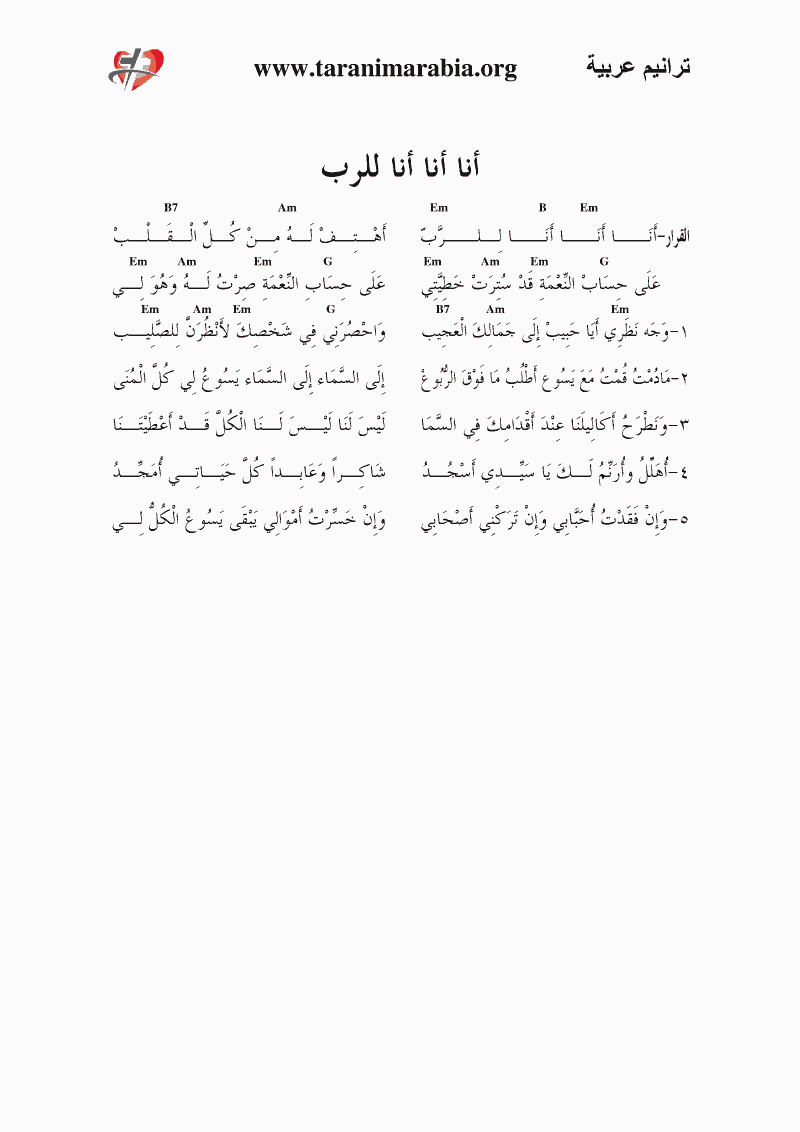 ترانيم عربية www.taranimarabia.org
أنا أنا أنا للرب
Em B Em Am B7
القرار-أَنَـــــا أَنَـــــا أَنَـــــا لِـــلـــــــرَّبّ أَهْـــتِـــــفْ لَـــهُ مِـــنْ كُـــلِّ الْـــقَـــلْـــبْ
G Em Am Em G Em Am Em
عَلَى حِسَابْ النِّعْمَةِ قَدْ سُتِرَتْ خَطِيَّتِي عَلَى حِسَابِ النِّعْمَةِ صِرْتُ لَـــهُ وَهُوَ لِـــي
Em Am B7 G Em Am Em
١-وَجَه نَظَرِي أَيَا حَبِيبْ إِلَى جَمَالِكَ الْعَجِيب وَاحْصُرَنِي فِي شَخْصِكَ لأَنْظُرَنَّ لِلصَّلِيـــب
٢-مَادُمْتُ قُمْتُ مَعَ يَسُوع أَطْلُبُ مَا فَوْقَ الرُّبُوعْ إِلَى السَّمَاء إِلَى السَّمَاء يَسُوعُ لِي كُلَّ الْمُنَى
٣-وَنَطْرَحُ أَكَالِيلَنَا عِنْدَ أَقْدَامِكَ فِي السَّمَا لَيْسَ لَنَا لَيْـــسَ لَـــنَا الْكُلَّ قَـــدْ أَعْطَيْتَـــنَا
٤-أُهَلِّلُ وأُرَنِّمُ لَـــكَ يَا سَيِّـــدِي أَسْجُـــدُ شَاكِـــراً وَعَابِـــداً كُلَّ حَيَـــاتِـــي أُمَجِّـــدُ
٥-وَإِنْ فَقَدْتُ أُحَبَّابِي وَإِنْ تَرَكْنِي أَصْحَابِي وَإِنْ خَسِّرْتُ أَمْوَالِي يَبْقَى يَسُوعُ الْكُلُّ لِـــي